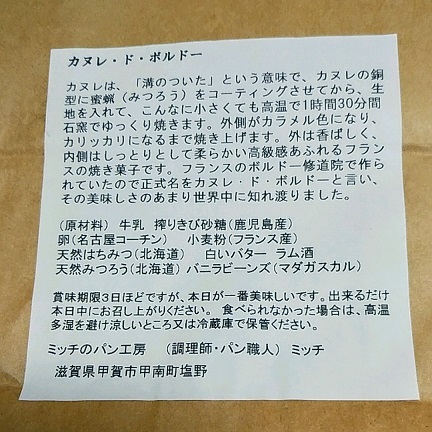 カヌレ・ド・ボルドー
カヌレは、「溝のついた」という意味で、カヌレの銅
型に蜜蝋（みつろう）をコーティングさせてから、生
地を入れて、こんなに小さくても高温で1時間30分間
石窯でゆっくり焼きます。外側がカラメル色になり、
カリッカリになるまで焼き上げます。外は香ばしく、
内側はしっとりとして柔らかい高級感あふれるフラン
スの焼き菓子です。フランスのボルドー修道院で作ら
れていたので正式名をカヌレ・ド・ボルドーと言い、
その美味しさのあまり世界中に知れ渡りました。
（原材料） 牛乳 搾りきび砂糖(鹿児島産)
卵(名古屋コーチン) 小麦粉(フランス産)
天然はちみつ(北海道) 白いバター ラム酒
天然みつろう(北海道) バニラビーンズ(マダガスカル)
賞味期限3日ほどですが、本日が一番美味しいです。出来るだけ
本日中にお召し上がりください。 食べられなかった場合は、高温
多湿を避け涼しいところ又は冷蔵庫で保管ください。
ミッチのパン工房 （調理師・パン職人） ミッチ
滋賀県甲賀市甲南町塩野